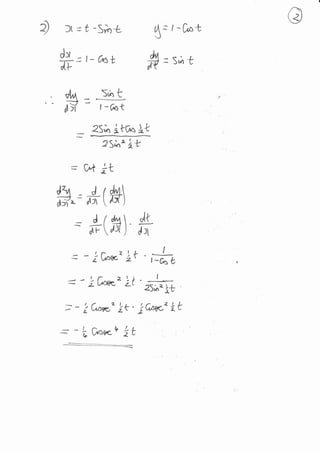 ②
2) x = t - Sin t    y = 1 - Cos t
dx/dt = 1 - Cos t    dy/dt = Sin t
∴ dy/dx = Sin t / (1 - Cos t)
= 2 Sin ½t Cos ½t / 2 Sin² ½t
= Cot ½t
d²y/dx² = d/dx (dy/dx)
= d/dt (dy/dx) · dt/dx
= - ½ Cosec² ½t · 1/(1 - Cos t)
= - ½ Cosec² ½t · 1/(2 Sin² ½t)
= - ½ Cosec² ½t · ½ Cosec² ½t
= - ¼ Cosec⁴ ½t